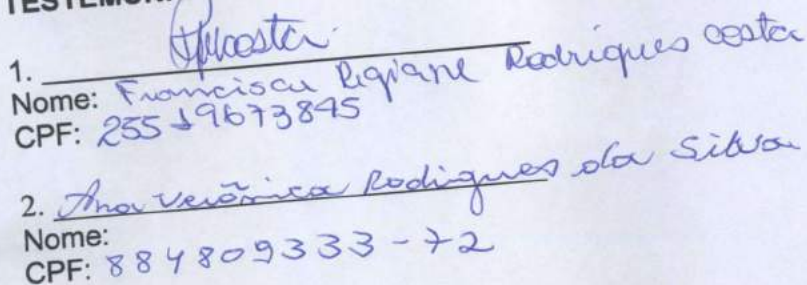 1.
Nome: Francisca Regiane Rodrigues Costa
CPF: 25519673845
2. Ana Verônica Rodigues da Silva
Nome:
CPF: 884809333-72